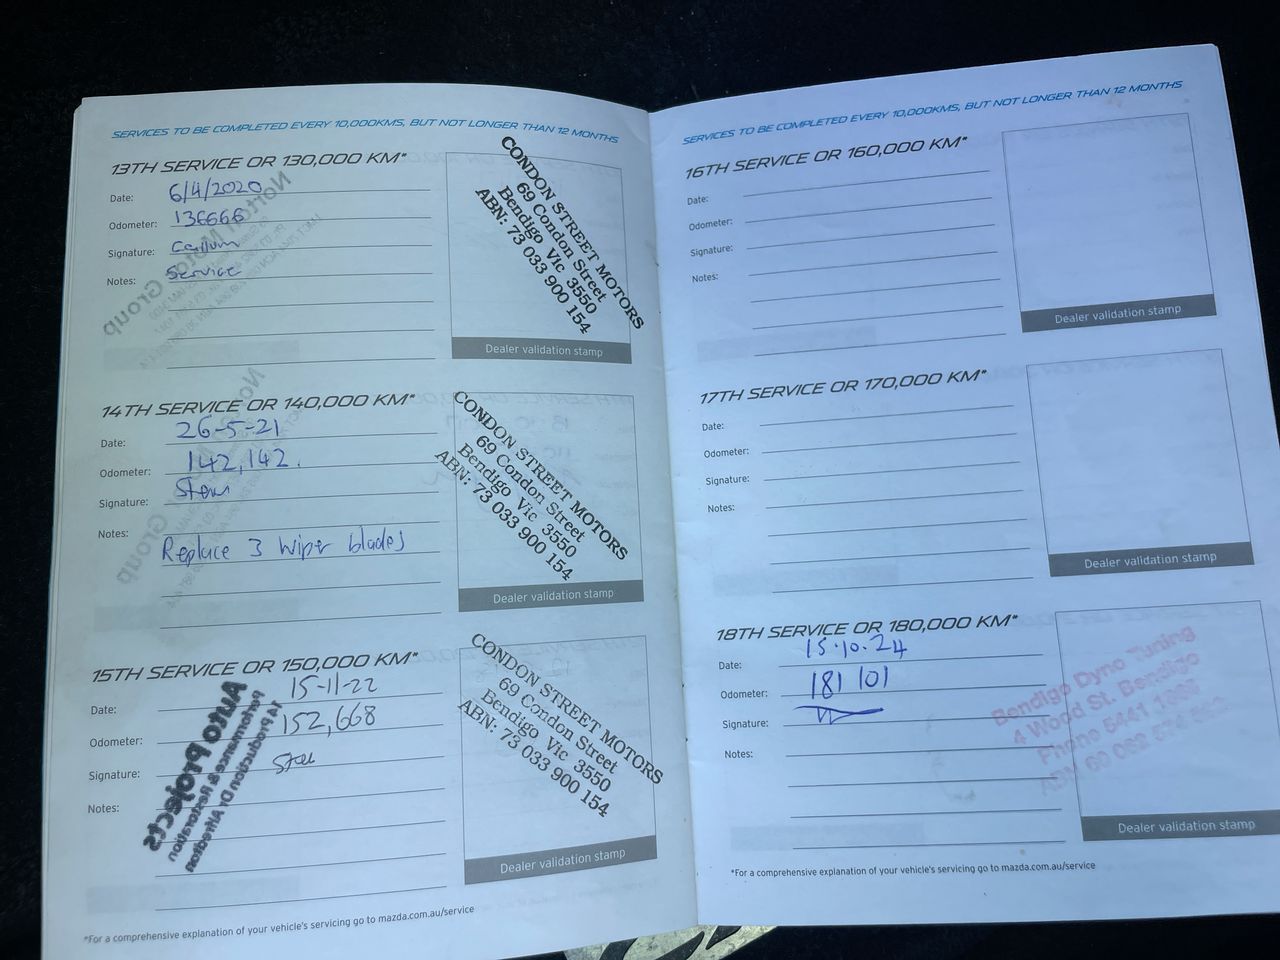 SERVICES TO BE COMPLETED EVERY 10,000KMS, BUT NOT LONGER THAN 12 MONTHS
13TH SERVICE OR 130,000 KM*
Date: 6/4/2020
Odometer: 136666
Signature: Callum
Notes: Service
CONDON STREET MOTORS
69 Condon Street
Bendigo Vic 3550
ABN: 73 033 900 154
Dealer validation stamp
14TH SERVICE OR 140,000 KM*
Date: 26-5-21
Odometer: 142,142.
Signature:
Notes:
Replace 3 wiper blades
CONDON STREET MOTORS
69 Condon Street
Bendigo Vic 3550
ABN: 73 033 900 154
Dealer validation stamp
15TH SERVICE OR 150,000 KM*
Date: 15-11-22
Odometer: 152,668
Signature:
Notes:
Auto Projects
Performance & Restoration
14 Production Dr Alfredton
CONDON STREET MOTORS
69 Condon Street
Bendigo Vic 3550
ABN: 73 033 900 154
Dealer validation stamp
*For a comprehensive explanation of your vehicle's servicing go to mazda.com.au/service
SERVICES TO BE COMPLETED EVERY 10,000KMS, BUT NOT LONGER THAN 12 MONTHS
16TH SERVICE OR 160,000 KM*
Date:
Odometer:
Signature:
Notes:
Dealer validation stamp
17TH SERVICE OR 170,000 KM*
Date:
Odometer:
Signature:
Notes:
Dealer validation stamp
18TH SERVICE OR 180,000 KM*
Date: 15.10.24
Odometer: 181 101
Signature:
Notes:
Bendigo Dyno Tuning
4 Wood St. Bendigo
Phone 5441
ABN
Dealer validation stamp
*For a comprehensive explanation of your vehicle's servicing go to mazda.com.au/service